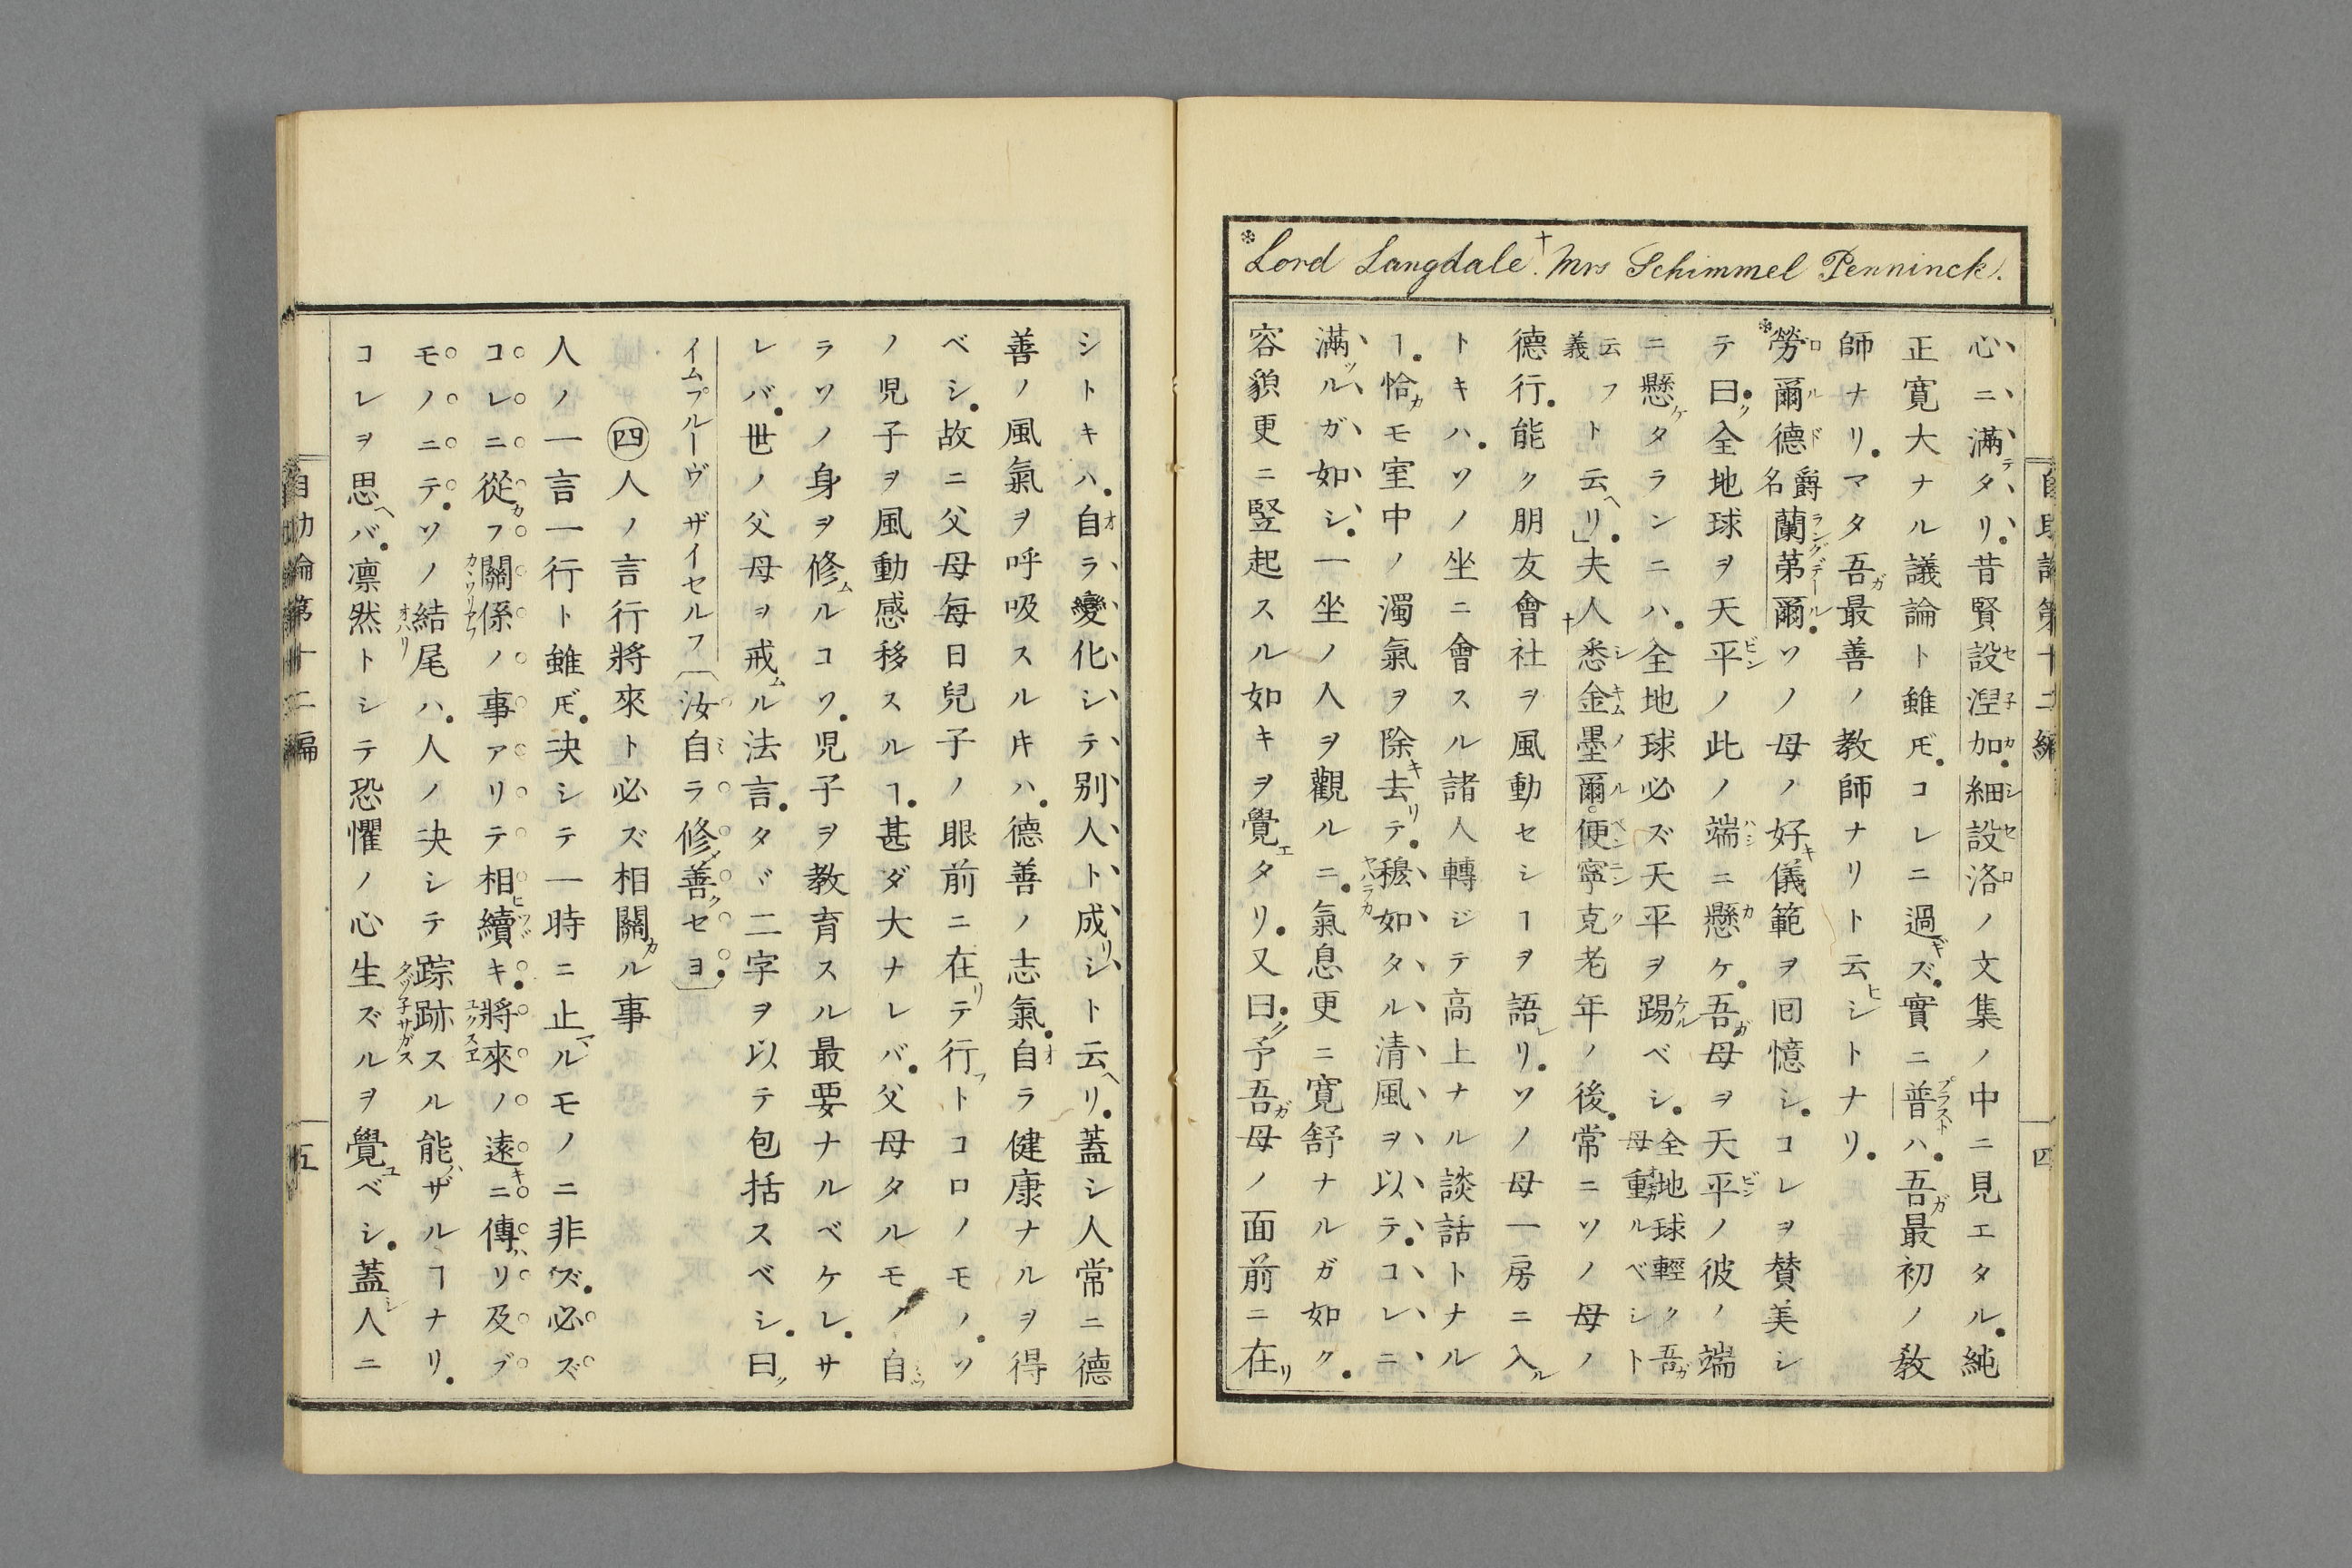 *Lord Langdale. †Mrs Schimmel Penninck.
自助論第十二編 四
心ニ滿タリ。昔賢設湼加。細設洛ノ文集ノ中ニ見エタル。純
正寛大ナル議論ト雖𪜈。コレニ過ズ。實ニ普ハ。吾最初ノ敎
師ナリ。マタ吾最善ノ教師ナリト云シトナリ。
*勞爾德爵名蘭第爾。ソノ母ノ好儀範ヲ囘憶シ。コレヲ賛美シ
テ曰。全地球ヲ天平ノ此ノ端ニ懸ケ。吾母ヲ天平ノ彼ノ端
ニ懸タランニハ。全地球必ズ天平ヲ踢ベシ。全地球輕ク吾母重ルベシト
云フト義云リ」夫人†悉金墨爾便寧克老年ノ後。常ニソノ母ノ
德行。能ク朋友會社ヲ風動セシヿヲ語リ。ソノ母一房ニ入
トキハ。ソノ坐ニ會スル諸人轉ジテ高上ナル談話トナル
ヿ。恰モ室中ノ濁氣ヲ除去テ。穩如タル清風ヲ以テ。コレニ
滿ルガ如シ。一坐ノ人ヲ觀ルニ。氣息更ニ寛舒ナルガ如ク。
容貌更ニ竪起スル如キヲ覺タリ。又曰。予吾母ノ面前ニ在
シトキハ。自ラ變化シテ別人ト成シト云リ。蓋シ人常ニ德
善ノ風氣ヲ呼吸スル𪜈ハ。德善ノ志氣。自ラ健康ナルヲ得
ベシ。故ニ父母每日兒子ノ眼前ニ在テ行トコロノモノ。ソ
ノ児子ヲ風動感移スルヿ。甚ダ大ナレバ。父母タルモノ自
ラソノ身ヲ修ルコソ。児子ヲ教育スル最要ナルベケレ。サ
レバ。世ノ父母ヲ戒ル法言。タヾ二字ヲ以テ包括スベシ。曰
イムプルーヴザイセルフ〔汝自ラ修善セヨ。〕
㊃人ノ言行將來ト必ズ相關ル事
人ノ一言一行ト雖𪜈。决シテ一時ニ止ルモノニ非ズ。必ズ
コレニ從フ關係ノ事アリテ相續キ。將來ノ遠ニ傳リ及ブ
モノニテ。ソノ結尾ハ。人ノ决シテ踪跡スル能ザルヿナリ。
コレヲ思バ。凛然トシテ恐懼ノ心生ズルヲ覺ベシ。蓋人ニ
自助論第十二編 五